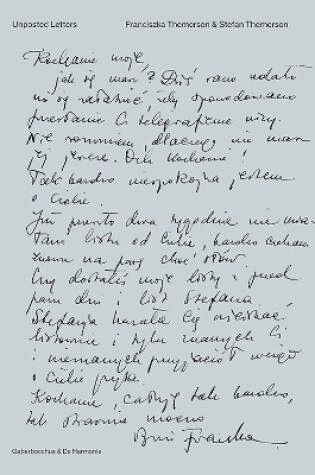 Unposted Letters Franciszka Themerson & Stefan Themerson
Kochanie moje,
jak się masz? Dziś rano udało
mi się załatwić, żeby spowodowano
przesłanie Ci telegraficznie wizy.
Nie rozumiem, dlaczego nie masz
jej jeszcze. Och kochanie!
Tak bardzo niespokojna jestem
o Ciebie.
Już prawie dwa tygodnie nie mia-
łam listu od Ciebie, bardzo czekam
znowu na parę choć słów.
Czy dostałeś moje listy z przed
paru dni i list Stefana
Stefania kazała Cię
i tylu znanych Ci
i nieznanych przyjaciół wciąż
o Ciebie pyta.
Kochanie, całuję tak bardzo,
tak strasznie mocno
Franka
Gaberbocchus & De Harmonie